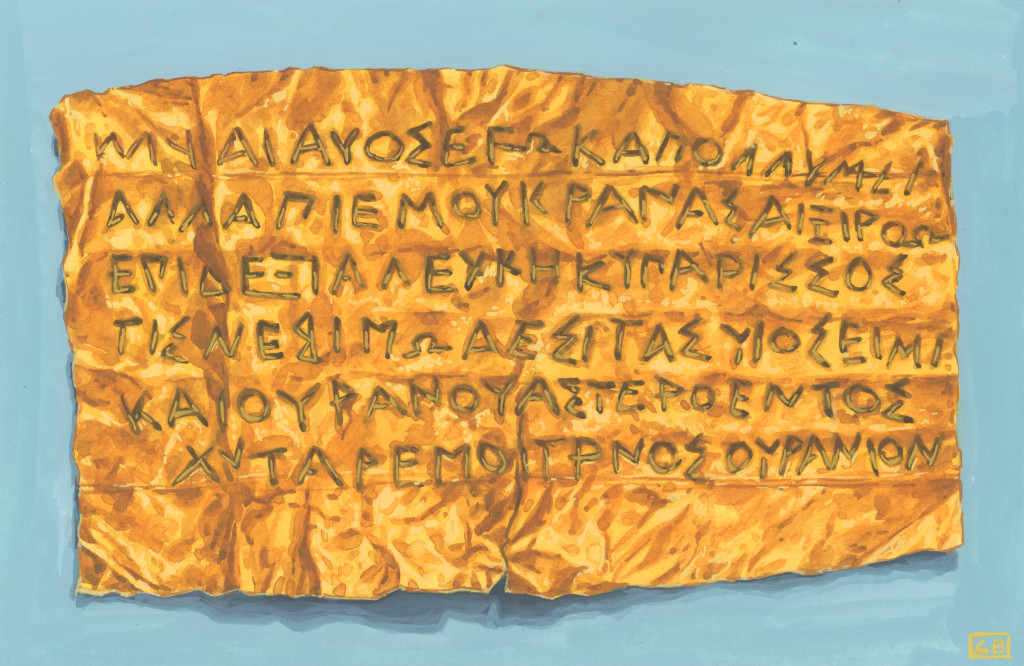 ΑΙ ΑΥΟΣ ΕΓΩ ΚΑΠΟΛΛΥΜΑΙ
ΑΛΛΑ ΠΙΕ ΜΟΥ ΚΡΑΝΑΣ ΑΙΞΙΡΟΩ
ΕΠΙ ΔΕΞΙΑ ΛΕΥΚΗ ΚΥΠΑΡΙΣΣΟΣ
ΤΙΣ ΕΣΙ ΤΑΣ ΥΙΟΣ ΕΙΜΙ
ΚΑΙ ΟΥΡΑΝΟΥ ΑΣΤΕΡΟΕΝΤΟΣ
ΕΜΟΙ ΟΥΡΑΝΙΟΝ
CB